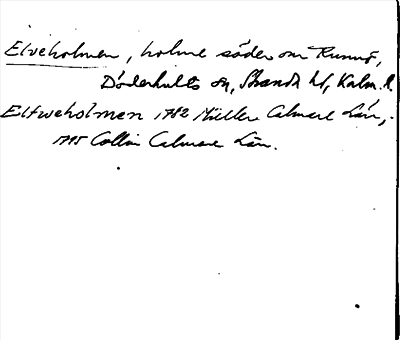 Elveholmen, holme söder om Runnö,
Döderhults sn, Stranda hd, Kalm. l.
Elfweholmen 1782 Müller Calmare Län,
1795 Collin Calmare Län.